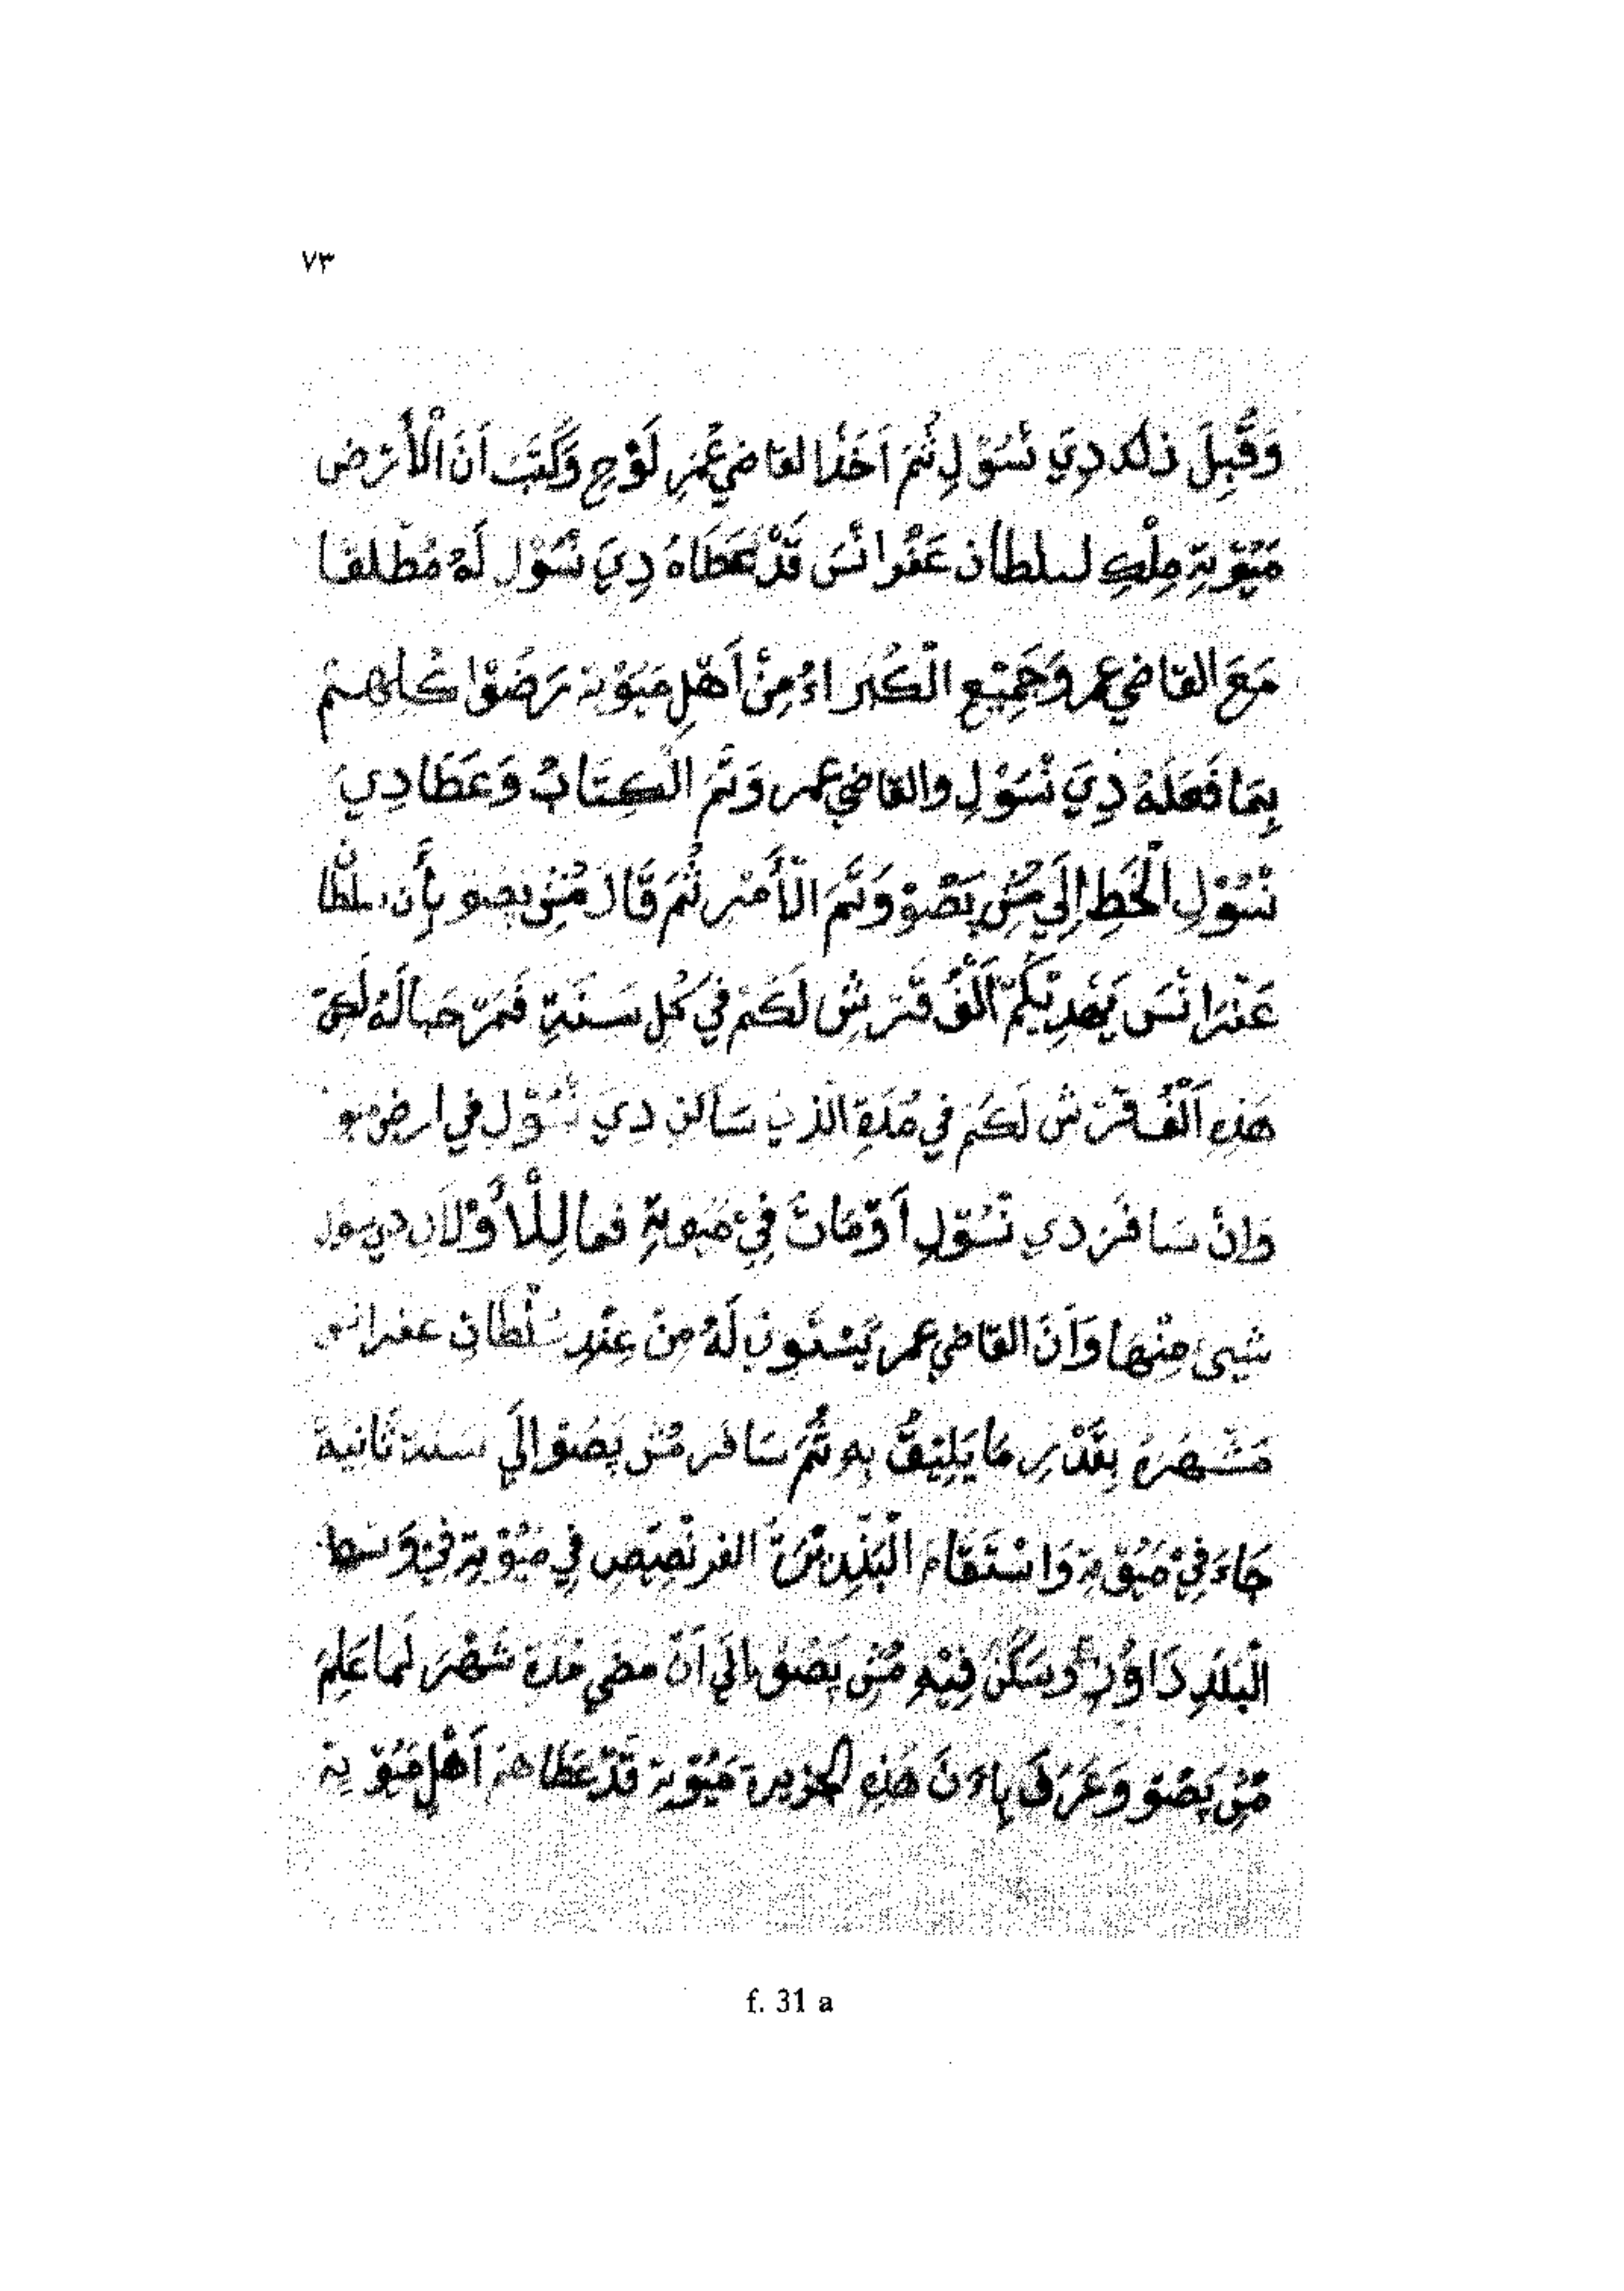 ٧٣
وَقَبِلَ ذلك دِيَ نْسُوْلِ ثُمَ اَخَذَا لقاضي عُمَرِ لَوْحِ وَكَتَبَ اَنَ الْأَرْض
مَيُوْتِةِ مِلْكِ لسلطان عَفْرانْسَ قَدْ عَطَاهُ دِيَ نْسُوْلِ لَهُ مُطْلقا
مَعَ القاضي عمر وَجَمِيْعِ الْكُبَراءُ مِنْ اَهْلِ مَيُوْتة رَضُوْا كُلهمْ
بِمَا فَعَلَهُ دِيَ نْسُوْلِ والقاضي عمر وَتَمَ الْكِتَابُ وَعَطَا دِيَ
نْسُوْلِ الْخَطِ اِلَي مُسْ بَصُوْ وَتَمَ الْأَمْر ثُمَ قَالَ مُسْ بصو بِأَن سلطان
عَفْرَانْسَ يَعْدِيْكُمْ اَلْفُ قَرْشِ لَكُمْ فِي كُلِ سَنَةِ
هَذِهِ اَلْفُ قرْش لَكُمْ فِي مُدَةِ الذي سَاكن دِيَ نْسُوْل في ارض
وَاِنْ سَافَر دي نْسُوْلِ اَوْ مَاتَ فِيْ مَيوتةِ فما لِلْأَوْلَاد دي سول
شيئ مِنْهَا وَاَنَ القاضي عمر لَهُ مِنْ عِنْدِ سُلْطَانِ عفرانس
مَشْهَرَهُ بِقَدْرِ مَا يَلِيْقُ بِهِ ثُمَ سَافر مُسْ بَصُوْ اِلَي سَنة ثَانية
جَاءَ فِيْ مَيُوْتِة وَاسْتَقَامَ الفرنْصِيص في ميُوْتِةِ فِيْ وَسط
الْبَلَدِ وَسَكَنَ فِيْهِ مُسْ بَصُوْ اِلَي اَنْ مضي مدة شَهْرَ لَما عَلِمَ
مُسْ بَصُوْ وَعَرَفَ بِاءَنَ هَذِهِ الجزيرة مَيُوْتة قَدْ عَطَاهَ اَهْلِ مَيُوْتِة
f. 31 a